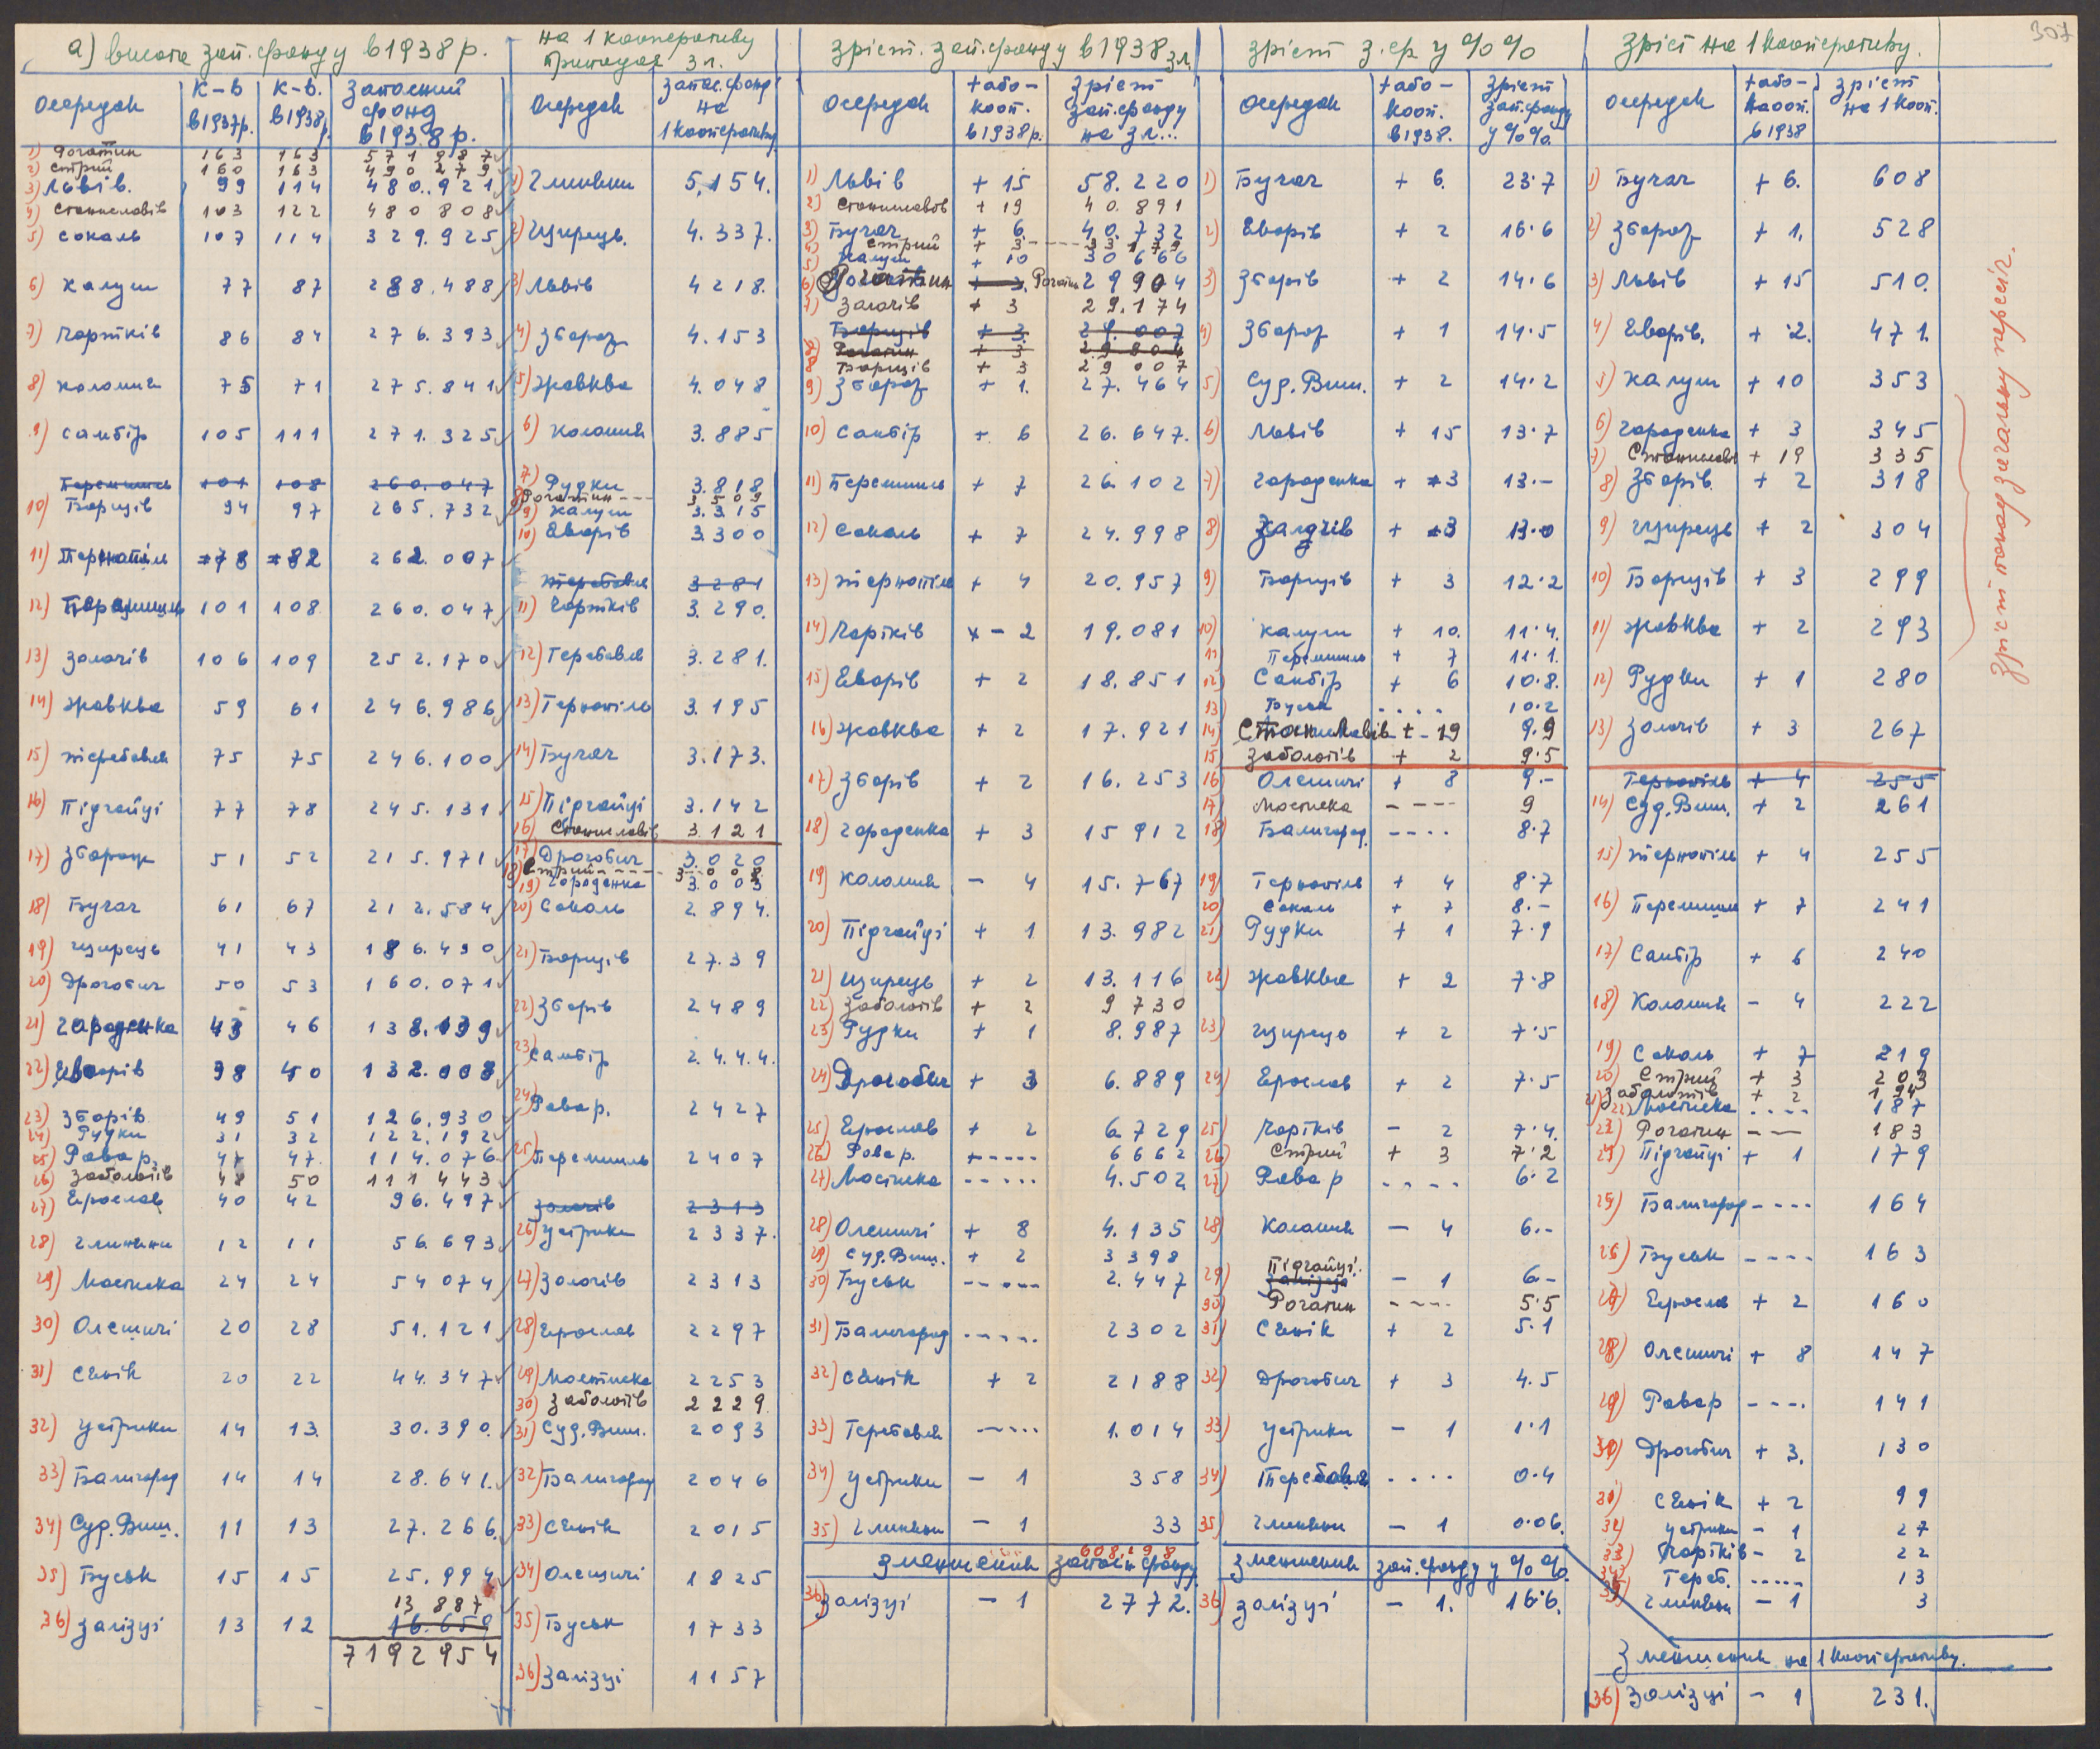 307
а) висота зап. фонду в 1938 р.
Осередок | К-в в 1937 р. | К-в. в 1938 р. | Запасний фонд в 1938 р.
1) Рогатин 163 163 571 887
2) Стрий 160 163 490 279
3) Львів. 99 114 480.921
4) Станиславів 103 122 480 808
5) Сокаль 107 114 329.925
6) Калуш 77 87 288.488
7) Чортків 86 84 276.393
8) Коломия 75 71 275.841
9) Самбір 105 111 271.325
Перемишль 101 108 260.047
10) Борщів 94 97 265.732
11) Тернопіль 78 82 262.007
12) Перемишль 101 108 260.047
13) Золочів 106 109 252.170
14) Жовква 59 61 246.986
15) Теребовля 75 75 246.100
16) Підгайці 77 78 245.131
17) Збараж 51 52 215.971
18) Бучач 61 67 212.584
19) Щирець 41 43 186.490
20) Дрогобич 50 53 160.071
21) Городенка 43 46 138.139
22) Яворів 38 40 132.008
23) Зборів 49 51 126.930
24) Рудки 31 32 122.192
25) Рава р. 47 47. 114.076
26) Заболотів 48 50 111 443
27) Ярослав 40 42 96.497
28) Глиняни 12 11 56.693
29) Мостиска 24 24 54 074
30) Олешичі 20 28 51.121
31) Сянік 20 22 44.347
32) Устрики 14 13 30.390.
33) Балигород 14 14 28.641.
34) Суд. Виш. 11 13 27.266.
35) Буськ 15 15 25.994
13 887
36) Залізці 13 12 16.659
7192954
на 1 кооперативу припадає зл.
Осередок | запас. фонд на 1 кооперативу
1) Глиняни 5,154.
2) Щирець. 4.337.
3) Львів 4218.
4) Збараж 4.153
5) Жовква 4.048
6) Коломия 3.885
7) Рудки 3.818
8) Рогатин --- 3 509
9) Калуш 3.315
10) Яворів 3300
Теребовля 3281
11) Чортків 3.290.
12) Теребовля 3.281.
13) Тернопіль 3.195
14) Бучач 3.173.
15) Підгайці 3.142
16) Станиславів 3.121
17) Дрогобич 3.020
18) Стрий ---- 3 0 0 8
19) Городенка 3.003
20) Сокаль 2.894.
21) Борщів 27.39
22) Зборів 2489
23) Самбір 2.4.4.4.
24) Рава р. 2427
25) Перемишль 2407
Золочів 2313
26) Устрики 2337.
27) Золочів 2313
28) Ярослав 2297
29) Мостиска 2253
30) Заболотів 2229.
31) Суд. Виш. 2093
32) Балигород 2046
33) Сянік 2015
34) Олешичі 1825
35) Буськ 1733
36) Залізці 1157
Зріст. зап. фонду в 1938 зл.
Осередок | + або - кооп. в 1938 р. | зріст зап. фонду на зл...
1) Львів + 15 58.220
2) Станиславов + 19 40.891
3) Бучач + 6 40.732
4) Стрий + 3 ---- 33 179
5) Калуш + 10 30 666
6) Рогатин + 3. Рогатин 29904
7) Золочів + 3 29.174
Борщів + 3. 29.007
Рогатин + 3 29804
8) Борщів + 3 29 007
9) Збараж + 1. 27.464
10) Самбір + 6 26.647.
11) Перемишль + 7 26.102
12) Сокаль + 7 24.998
13) Тернопіль + 4 20.957
14) Чортків - 2 19.081
15) Яворів + 2 18.851
16) Жовква + 2 17.921
17) Зборів + 2 16.253
18) Городенка + 3 15 912
19) Коломия - 4 15.767
20) Підгайці + 1 13.982
21) Щирець + 2 13.116
22) Заболотів + 2 9 730
23) Рудки + 1 8.987
24) Дрогобич + 3 6.889
25) Ярослав + 2 6.729
26) Рава р. ----- 6662
27) Мостиска ----- 4.502
28) Олешичі + 8 4.135
29) Суд. Виш. + 2 3398
30) Буськ ----- 2.447
31) Балигород ----- 2302
32) Сянік + 2 2188
33) Теребовля ----- 1.014
34) Устрики - 1 358
35) Глиняни - 1 33
608.198
зменшення запасн. фонду.
36) Залізці - 1 2772.
зріст з. ф. у %%
Осередок | + або - кооп. в 1938. | зріст зап. фонду у %%.
1) Бучач + 6. 23·7
2) Яворів + 2 16·6
3) Зборів + 2 14·6
4) Збараж + 1 14·5
5) Суд. Виш. + 2 14·2
6) Львів + 15 13·7
7) Городенка + 3 13·-
8) Золочів + 3 13·0
9) Борщів + 3 12·2
10) Калуш + 10. 11·4.
11 Перемишль + 7 11·1.
12) Самбір + 6 10·8.
13) Буськ .... 10·2
14) Станиславів + 19 9.9
15 Заболотів + 2 9·5
16 Олешичі + 8 9·-
17) Мостиска ---- 9
18) Балигород. ---- 8·7
19) Тернопіль + 4 8·7
20) Сокаль + 7 8·-
21) Рудки + 1 7·9
22) Жовква + 2 7·8
23) Щирець + 2 7·5
24) Ярослав + 2 7·5
25) Чортків - 2 7·4.
26) Стрий + 3 7·2
27) Рава р ---- 6·2
28) Коломия - 4 6·-
29) Підгайці. Залізці - 1 6-
30) Рогатин ---- 5·5
31) Сянік + 2 5·1
32) Дрогобич + 3 4.5
33) Устрики - 1 1·1
34) Теребовля .... 0·4
35) Глиняни - 1 0·06.
зменшення зап. фонду у %%.
36) Залізці - 1. 16·6.
Зріст на 1 кооперативу.
Осередок | + або - кооп. в 1938 | зріст на 1 кооп.
1) Бучач + 6. 608
2) Збараж + 1. 528
3) Львів + 15 510.
4) Яворів. + 2. 471.
5) Калуш + 10 353
6) Городенка + 3 345
7) Станиславів + 19 335
8) Зборів. + 2 318
9) Щирець + 2 304
10) Борщів + 3 299
11) Жовква + 2 293
12) Рудки + 1 280
13) Золочів + 3 267
Тернопіль + 4 255
14) Суд. Виш. + 2 261
15) Тернопіль + 4 255
16) Перемишль + 7 241
17) Самбір + 6 240
18) Коломия - 4 222
19) Сокаль + 7 219
20) Стрий + 3 203
21) Заболотів + 2 194
22) Мостиска .... 187
23) Рогатин --- 183
24) Підгайці + 1 179
25) Балигород ---- 164
26) Буськ ---- 163
27) Ярослав + 2 160
28) Олешичі + 8 147
29) Рава р ---- 141
30) Дрогобич + 3. 130
31) Сянік + 2 99
32) Устрики - 1 27
33) Чортків - 2 22
34) Тереб. ..... 13
35) Глиняни - 1 3
Зменшення на 1 кооперативу.
36) Залізці - 1 231.
зріст понад загальну пересіч.